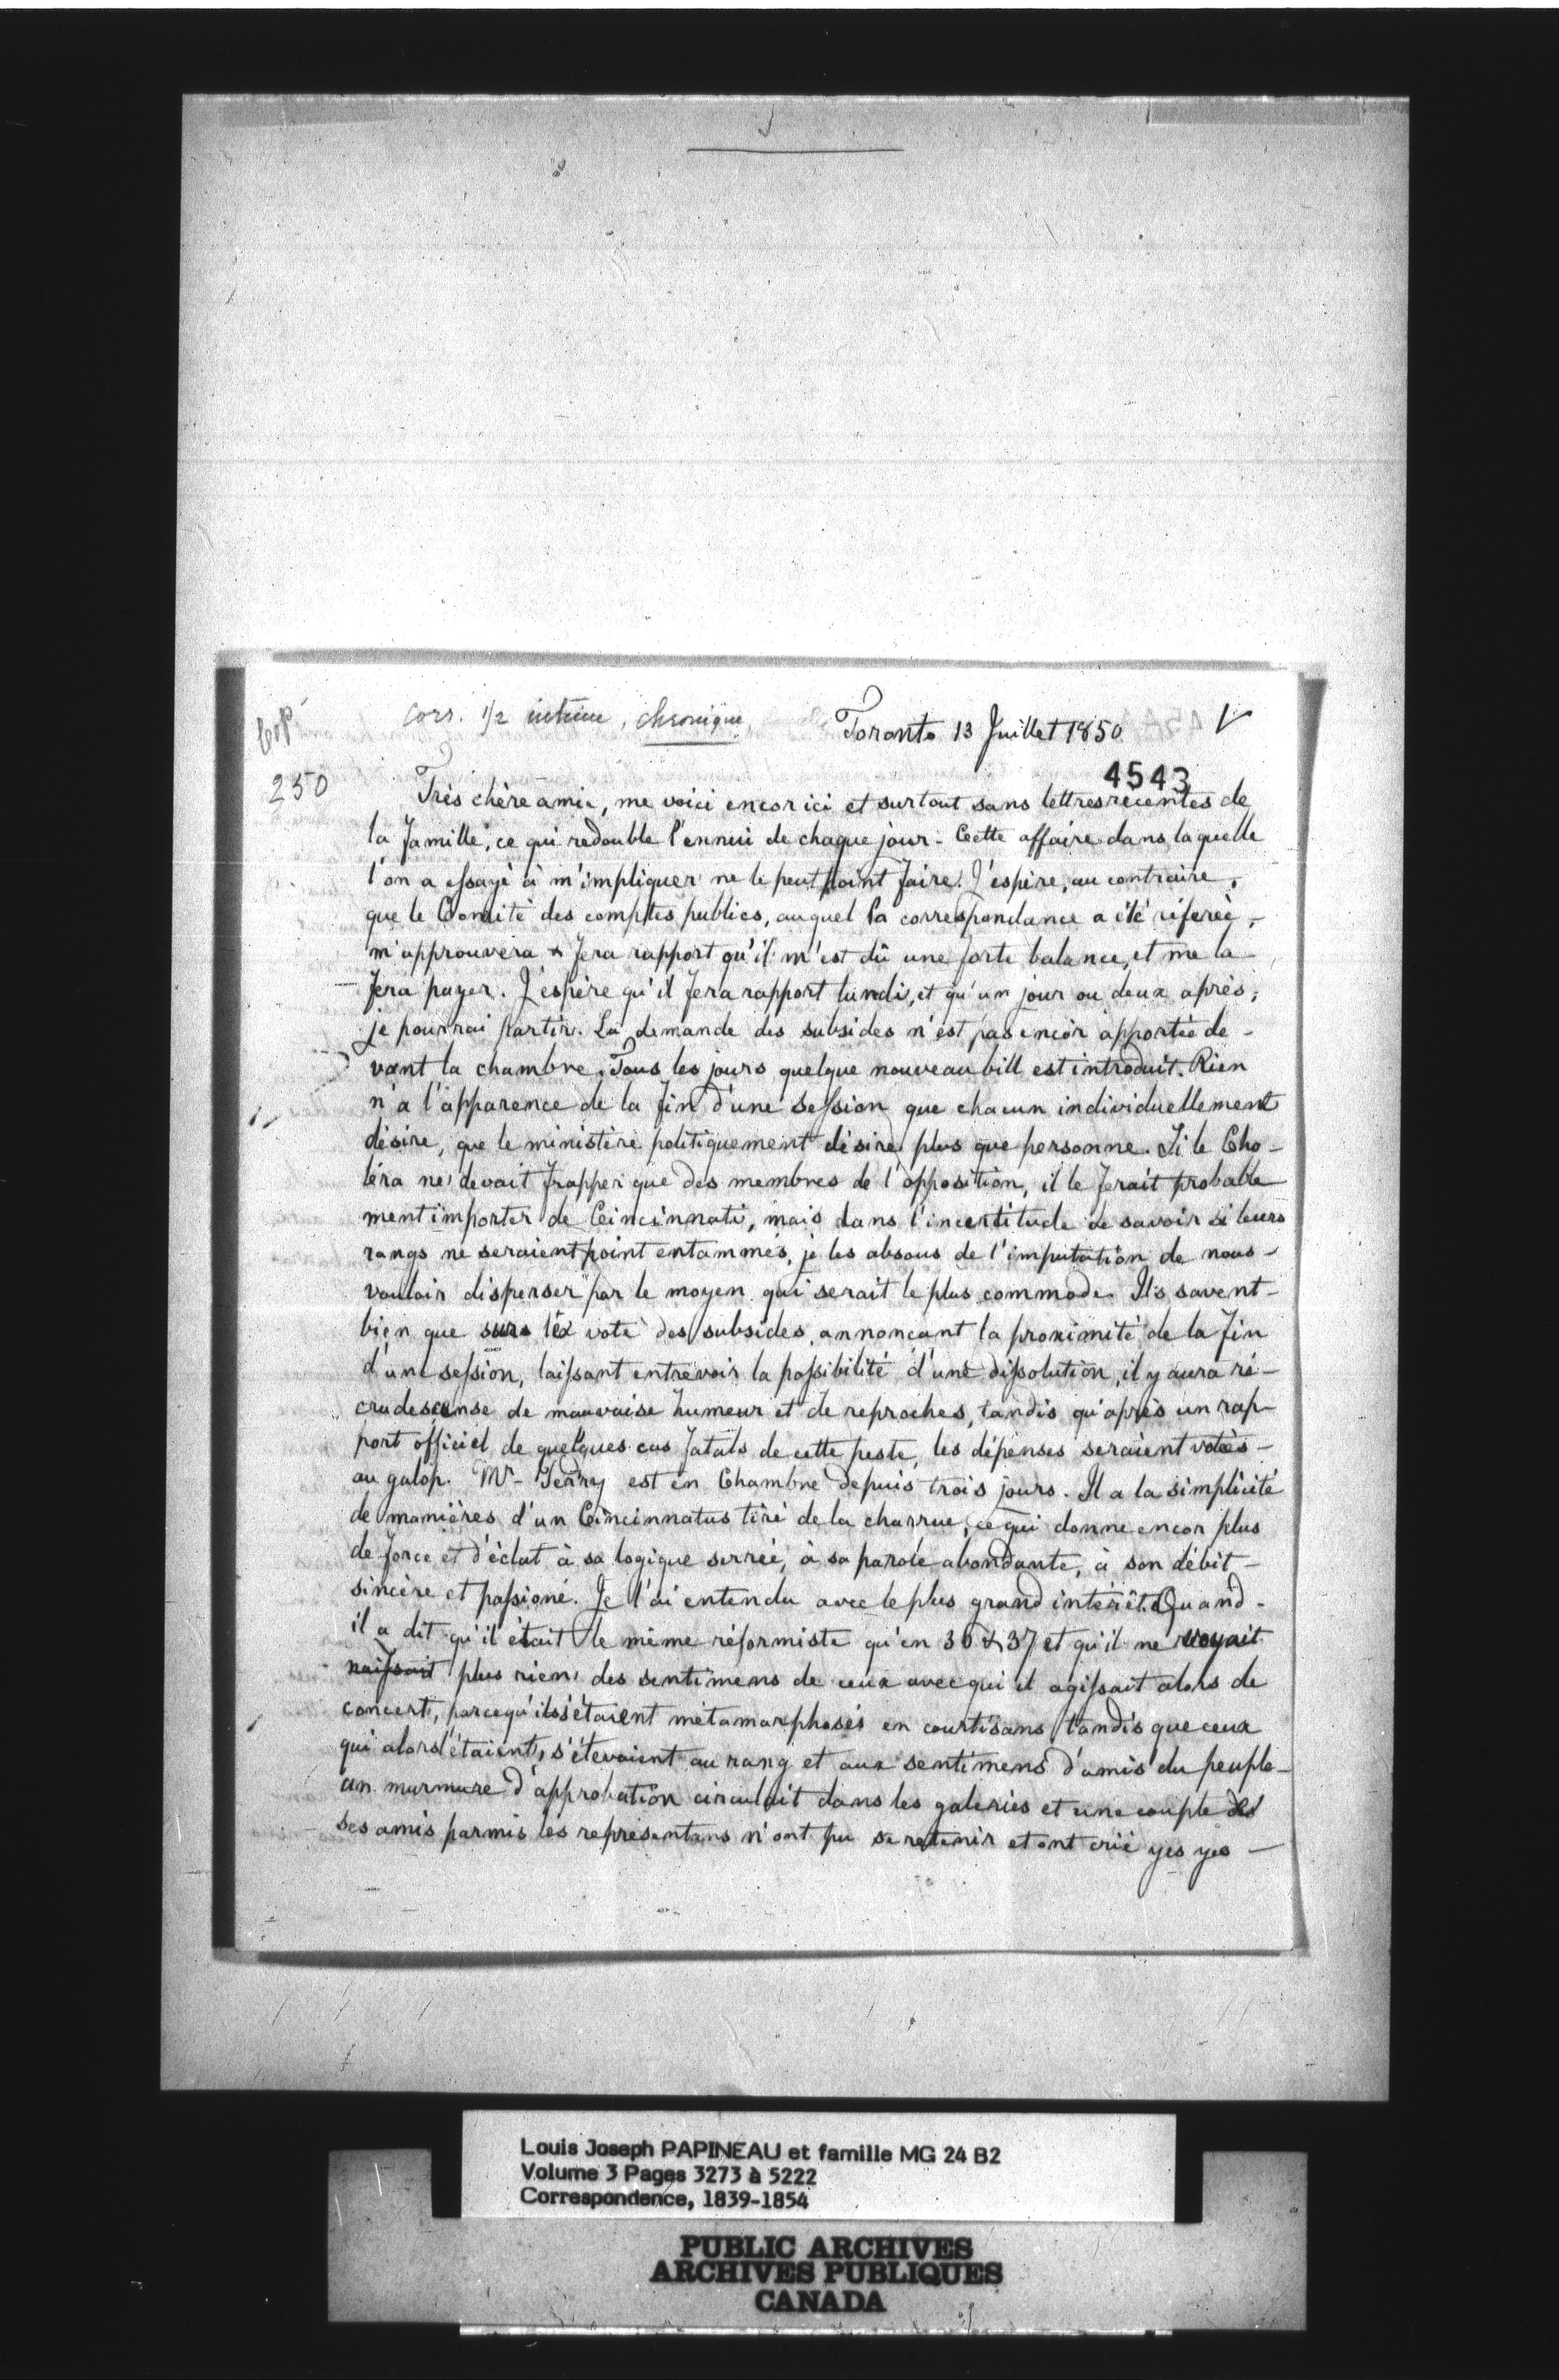 Cop
250
Cors. 1/2 intime, chronique
Toronto 13 Juillet 1850
4543
Très chère amie, me voici encor ici et surtout sans lettres récentes de
la famille, ce qui redouble l'ennui de chaque jour. Cette affaire dans laquelle
l'on a essayé à m'impliquer ne le peut point faire. J'espère, au contraire,
que le Comité des comptes publics, auquel la correspondance a été référée,
m'approuvera & fera rapport qu'il m'est dû une forte balance, et me la
fera payer. J'espère qu'il fera rapport lundi, et qu'un jour ou deux après,
je pourrai partir. La demande des subsides n'est pas encor apportée de-
vant la chambre. Tous les jours quelque nouveau bill est introduit. Rien
n'a l'apparence de la fin d'une session que chacun individuellement
désire, que le ministère politiquement désire plus que personne. Si le Cho-
léra ne devait frapper que des membres de l'opposition, il le ferait probable
ment importer de Cincinnati, mais dans l'incertitude de savoir si leurs
rangs ne seraient point entammés, je les absous de l'imputation de nous-
vouloir disperser par le moyen qui serait le plus commode. Ils savent-
bien que sur le vote des subsides, annonçant la proximité de la fin
d'une session, laissant entrevoir la possibilité d'une dissolution, il y aura ré-
crudescense de mauvaise humeur et de reproches, tandis qu'après un rap-
port officiel de quelques cas fatals de cette peste, les dépenses seraient votées-
au galop. Mr- Perry est en Chambre depuis trois jours. Il a la simplicité
de manières d'un Cincinnatus tiré de la charrue, ce qui donne encor plus
de force et d'éclat à sa logique serrée, à sa parole abondante, à son débit-
sincère et passioné. Je l'ai entendu avec le plus grand intérêt. Quand-
il a dit qu'il était le même réformiste qu'en 36 & 37 et qu'il ne voyait
naissait plus rien des sentimens de ceux avec qui il agissait alors de
concert, parcequ'ils s'étaient métamorphosés en courtisans tandis que ceux
qui alors l'étaient, s'élevaient au rang et aux sentimens d'amis du peuple-
un murmure d'approbation circulait dans les galeries et une couple de
ses amis parmis les représentans n'ont pu se retenir et ont crié yes yes -
Louis Joseph PAPINEAU et famille MG 24 B2
Volume 3 Pages 3273 à 5222
Correspondence, 1839-1854
PUBLIC ARCHIVES
ARCHIVES PUBLIQUES
CANADA